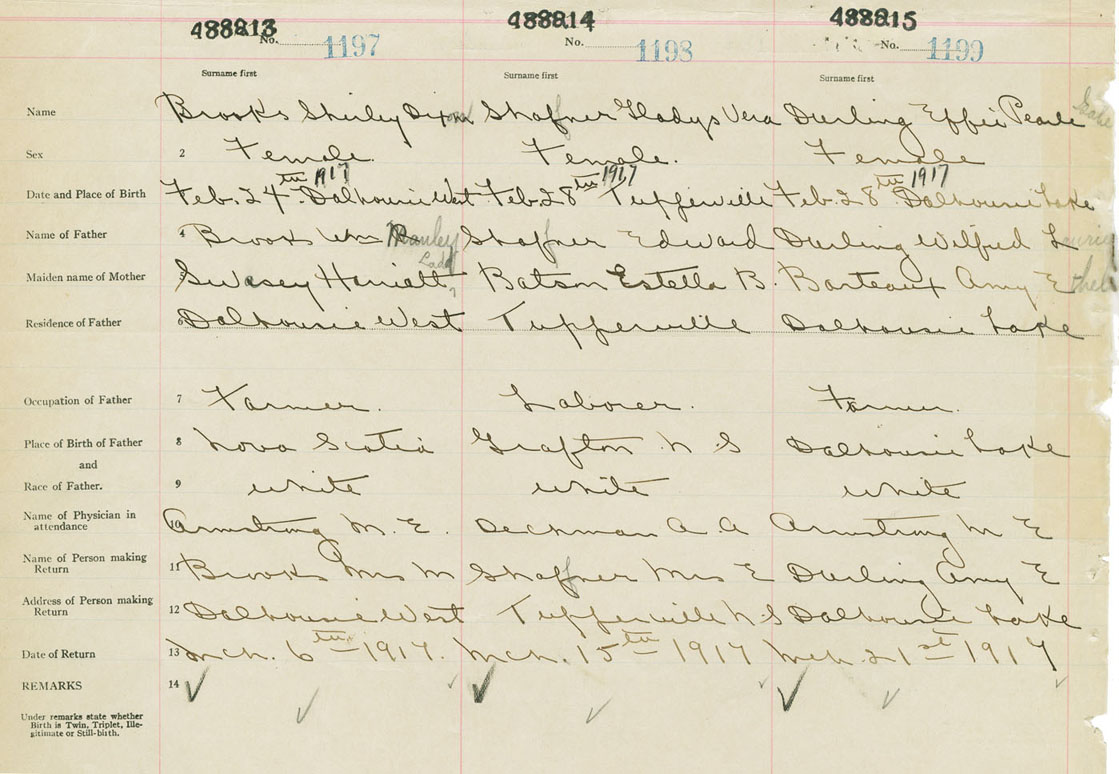 48813 48814 48815
No. 1197 No. 1198 No. 1199
Surname first Surname first Surname first
Name Brooks Shirley Dixon Shaffner Gladys Vera Durling Effie Pearle
Sex 2 Female. Female. Female
Date and Place of Birth Feb. 24th 1917 Dalhousie West Feb. 28th 1917 Tupperville Feb. 28th 1917 Dalhousie Lake
Name of Father 4 Brooks Wm Manley Ladd Shaffner Edward Durling Wilfred L
Maiden name of Mother 5 Swasey Harriett Batson Estella B. Barteaux Amy E
Residence of Father 6 Dalhousie West Tupperville Dalhousie Lake
Occupation of Father 7 Farmer. Laborer. Farmer.
Place of Birth of Father 8 Nova Scotia Grafton N S Dalhousie Lake
and
Race of Father. 9 white white white
Name of Physician in attendance 10 Armstrong M. E. Deckman A. A Armstrong M E
Name of Person making Return 11 Brooks Mrs M Shaffner Mrs E Durling Amy E
Address of Person making Return 12 Dalhousie West Tupperville N.S Dalhousie Lake
Date of Return 13 Mch. 6th 1917. Mch. 15th 1917 Mch. 21st 1917
REMARKS 14
Under remarks state whether
Birth is Twin, Triplet, Ille-
gitimate or Still-birth.